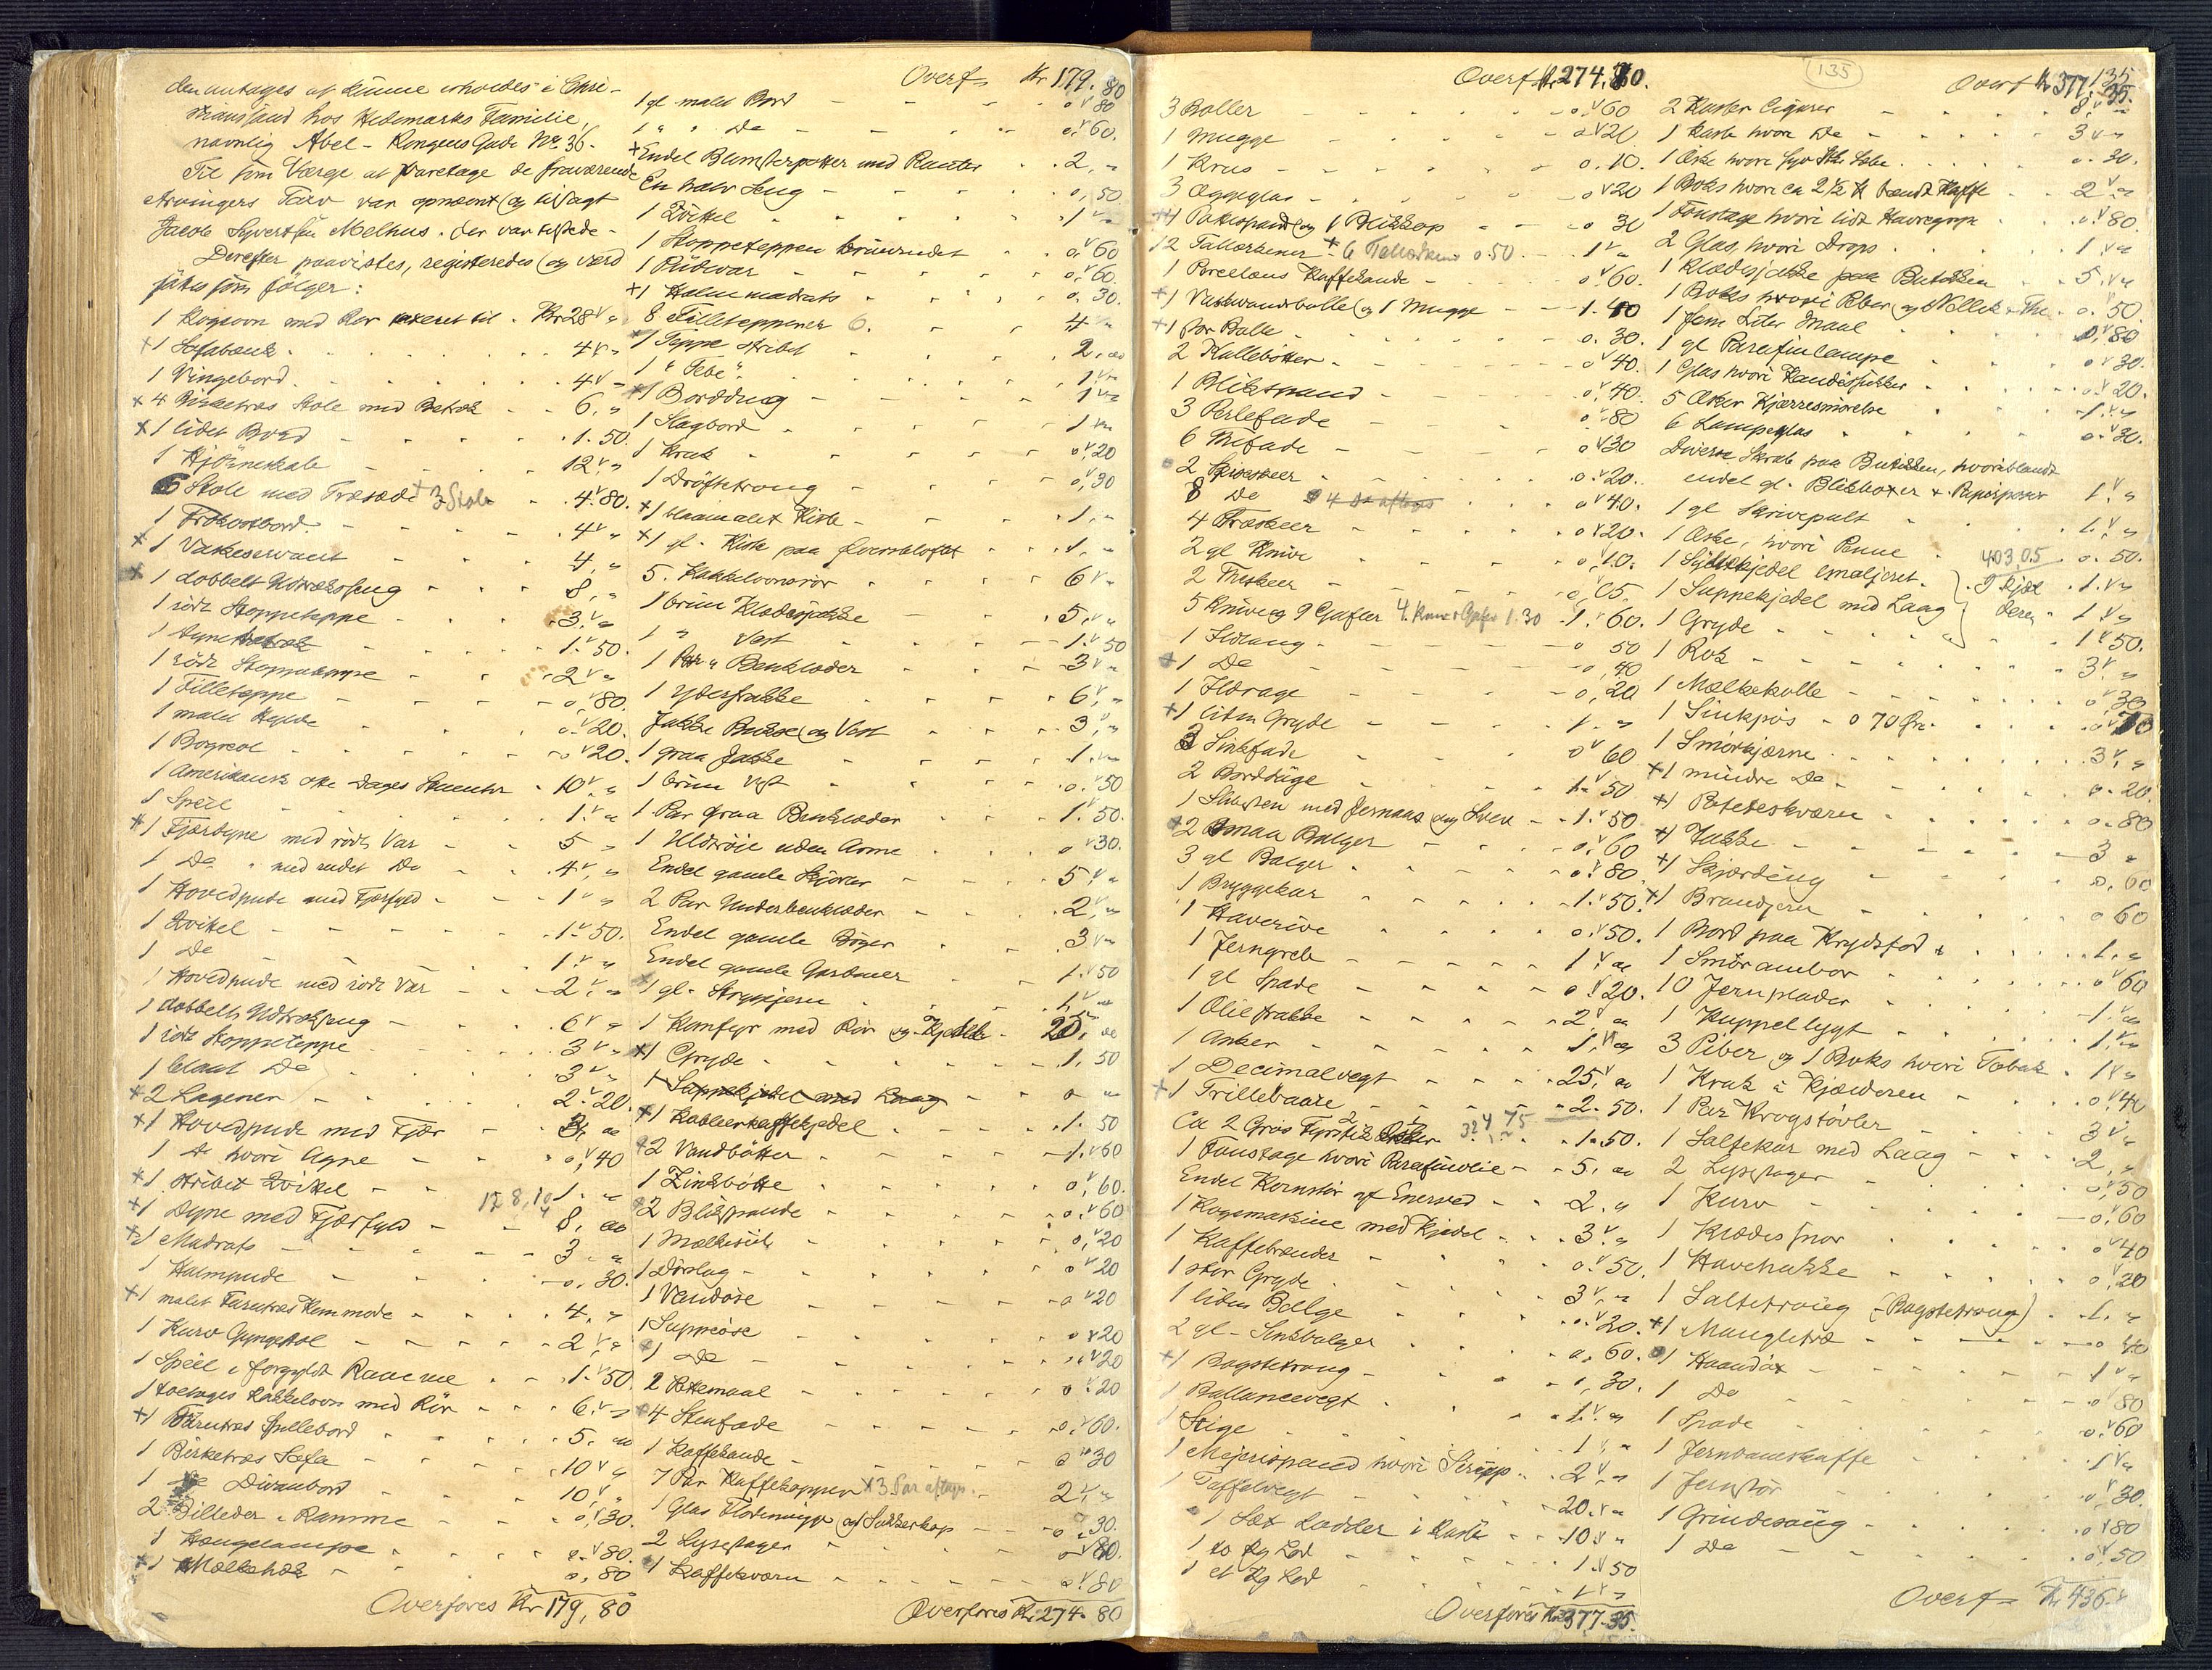 den antages at kunne erholdes i Chri-
stianssand hos Hedemarks Familie,
navnlig Abel - Kongens Gade No 36.
Til som Værge at varetage de fraværende
Arvingers Tarv var opnævnt og tilsagt
Jacob Syvertsen Melhus. der var tilstede -
Derefter paavistes, registreredes og værd
sattes som følger:
1 Kogeovn med Rør taxeret til . Kr 28 "
+1 Sofabænk . 4 "
1 Vingebord . 4 "
+ 4 Birketræs Stole med Betræk - 6, "
+1 lidet Bord - 1. 50.
1 Hjørneskab 12 "
6 Stole med Træsæde + 3 Stole . 4. 80.
1 Frokostbord - 4 "
+ 1 Vaskeservant 4, "
+ 1 dobbelt Udtræksseng 8, "
1 rødt Stoppeteppe . 3. "
1 Dynebetræk 1. 50.
1 rødt Stoppeteppe . 2 "
1 Filleteppe 0, 80.
1 malet Hylde 0. 20.
1 Bogreol - 0 20.
1 Amerikansk otte Dages Stueuhr . 10, "
1 Speil 1. "
+1 Fjærdyne med rødt Var 5 "
1 Do " med rudet Do . 4, "
1 Hovedpude med Fjærfyld - 1 "
1 Dvikel - 1. 50.
1 Do 1. "
1 Hovedpude med rødt Var - 2. "
1 dobbelt Udtræksseng - 6 "
1 rødt Stoppeteppe . 3 "
1 blaat Do 3 "
+2 Lagener 2. 20.
+1 Hovedpude med Fjær 3, "
1 Do hvori Agne 0, 40
+1 stribet Dvikel - 1. "
+1 Dyne med Fjærfyld - 8, "
+1 Madrats - 3 "
1 Halmpude - 0, 30.
+1 malet Furutræs Kommode . 4, "
1 Kurv Gyngestol 2, "
1 Speil i forgyldt Ramme . 1. 50.
1 toetages Kakkelovn med Rør 6. "
+1 Furutræs Spillebord . 5. "
1 Birketræs Sofa 10 "
1 Do Divanbord 10, "
2 Billeder i Ramme 0, 30.
1 Hængelampe . 0. 80.
+1 Melkehæk - 0, 80
Overføres Kr 179, 80
Overf. Kr 179. 80
1 gl. malet Bord - 0 80
1 " " Do - 0, 60.
+Endel Blomsterpotter med Planter . 2, "
En halv Seng - 0, 50
1 Dvikel 1 "
1 Stoppeteppe brunrudet 0, 60
1 Pudevar - 0, 60.
+1 Halmmadrats 0. 30.
8 Filletepper 6. 4 "
+1 Teppe stribet 2, "
1 " Febe" . 1, "
+1 Borddug 1 "
1 Slagbord 1 "
1 Krak 0, 20
1 Drøftetroug 0, 30
+1 blaamalet Kiste - 1. "
+1 gl. Kiste paa Overrsloftet 1. "
5. Kakkelovnsrør 6 "
1 brun Klædesjakke 5, "
1 " Vest 1. 50
1 Par " Benklæder 3 "
1 Yderfrakke 6, "
Jakke Bukse og Vest 3, "
1 graa Jakke 1. "
1 brun Vest 0. 50
1 Par graa Benklæder 1. 50.
1 Uldtrøie uden Arme 0 30.
Endel gamle Skjorter 5, "
2 Par Underbenklæder 2, "
Endel gamle Bøger 3 "
Endel gamle Gardiner 1. 50
1 gl. Strygejern 1, "
1 Komfyr med Rør og Kjedele - 20, "
+1 Gryde - 1, 50
1 Suppekjedel med Laag - 0 "
+1 Kobberkaffekjedel 1. 50
+2 Vandbøtter 1. 60
1 Zinkbøtte 0, 60.
+2 Blikspande 0. 60
1 Mælkesil 0, 20
1 Dørslag - 0 20
1 Vandøse 0 20
1 Suppeøse 0 20
+1 Do - 0 20
2 Pottemaal 0 20
+4 Stenfade 0, 60.
1 Kaffekande - 0 30
7 Par Kaffekopper + 3 Par aftags - 2, "
1 Glas Flødemugge og Sukkerkop - 0, 30.
2 Lysestager 0 80.
+1 Kaffekværn 0. 80
Overføres Kr. 274. 80
Overf. Kr 274. 80.
3 Boller - 0 60
1 Mugge 0 20
1 Krus - 0. 10.
3 Æggeglas 0 20
+1 Pottespand og 1 Blikkop 0 30
12 Tallerkener + 6 Tallerkener 0.50 . 1 "
1 Porcelæns Kaffekande - 0 60.
+1 Vaskevandsbolle og 1 Mugge 1. 40
+1 Par Bolle 0. 30.
2 Kullebøtter - 0 40.
1 Blikspand 0, 40.
3 Perlefade 0 80
6 Trefade 0 30
2 Spiseskeer 0 20.
8 Do 4 Do aftags 0 40.
4 Træskeer 0 20.
2 gl Knive 0, 10.
2 Theskeer 0, 05.
5 Knive og 9 Gafler 4. Knive o Gafler 1.30 . 1. 60.
1 Ildtang - 0 50
+1 Do - 0, 40
1 Ildrage 0, 20
+1 liten Gryde 1. "
3 Sinkfade 0 60
2 Borddüge 1. 50
1 Skuren med Jernaas og Sveiv - 1. 50
+2 Smaa Balger 0, 60
3 gl Balger 0. 80
1 Bryggekar 1. 50.
1 Haverive 0. 50.
1 Jerngreb 1 "
1 gl Spade 0. 20.
1 Oliefrakke 2, "
1 Anker 1, "
1 Decimalvegt 25, "
+1 Trillebaare 2. 50.
Ca 2 Gros Fyrstik Æsker 324 75 . 1. 50.
1 Foustage hvori Parafinolie - 5, "
Endel Kornstør af Enerved - 2. "
1 Kogemaskine med Kjedel 3. "
1 Kaffebrænder 0. 50.
1 stor Gryde 3, "
1 liden Bælge 0. 20.
2 gl - Sinkbalger 0, 60.
+1 Bagstetroug - 0, 30.
1 Ballancevegt 1. "
1 Stige 1, "
1 Meierispand hvori Sirup. 2, "
1 Taffelvegt 20. "
1 Sæt Lodder i Kasse 10. "
1 to Kg Lod 1. 50
1 et Kg Lod 1 "
Overføres Kr 377. 35.
135
135
Overf Kr 377. 35.
2 Kasser Cigarer 8, "
1 Kasse hvori Do - 3 "
1 Æske hvori syv Stk. Sæbe 0. 30.
1 Boks hvori ca 2½ K brændt Kaffe 2 "
1 Foustage hvori lidt Havregryn 0. 80.
2 Glas, hvori Drops 1 "
1 Klædesjakke paa Butikken 5. "
1 Boks hvori Peber og Nellik + The 0. 50.
1 fem Liter Maal 0, 80
1 gl Parafinlampe 0 30.
1 Glas hvori Kandissukker 0. 20.
5 Æsker Kjærresmørelse 1. "
6 Lampeglas 0. 30.
Diverse Skrab paa Butikken, hvoriblandt
endel gl. Blikboxer & Papirposer 1. "
1 gl Skrivepult 1. "
1 Æske, hvori Penne . 403,05 0. 50.
1 Syltekjedel emaljeret. 1. "
1 Suppekjedel med Laag 1 "
1 Gryde 1. 50.
1 Rok 3. "
1 Mælkekolle 0, 30
1 Sinkpøs - 0 70 Øre. 0. 70
1 Smørkjærne 3, "
+1 mindre Do 0. 20.
+1 Poteteskværn 0. 80
+1 Hakke 3 "
+1 Skjærding 0, 60
+1 Brandjern 0 60
1 Bord paa Krydsfod 1. "
1 Smørambar 0 60
10 Jernplader 1. "
1 Kuppellygt 1. "
3 Piber og 1 Boks hvori Tobak 1 "
1 Krak i Kjælderen 0. 40
1 Par Krogstøvler 3 "
1 Saltekar med Laag 2, "
2 Lysestager 0, 50
1 Kurv 0, 60
1 Klædessnor 0 40
1 Havehakke 0, 20
1 Saltetroug (Bagstetroug) 1. "
+1 Mangletræ 0 40
1 Haandøx 1 "
1 Do 0 80
1 Spade 0. 60
1 Jernbaneskuffe 1 "
1 Jernstør 0, 30.
1 Grindesaug 0 80
1 Do 0. 50
Overf Kr. 436.